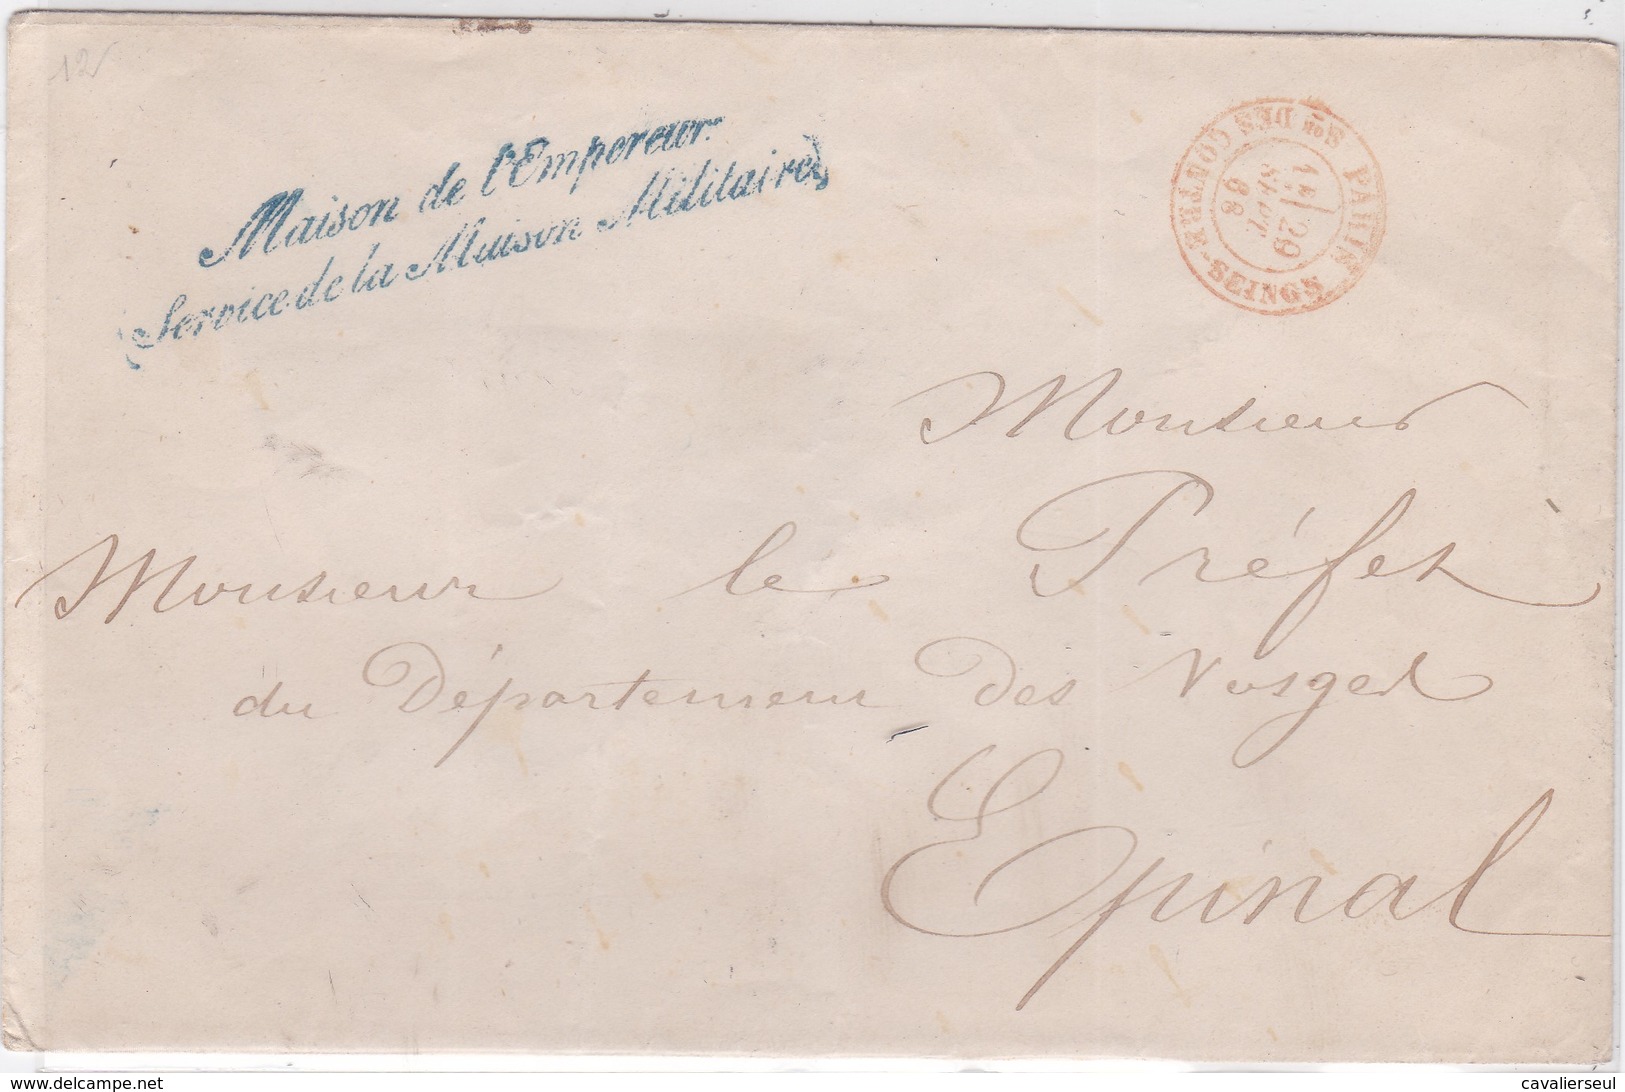 12
Maison de l'Empereur
(Service de la Maison Militaire)
PARIS Son DES CONTRE-SEINGS
1E 29
SEPT
68
Monsieur
Monsieur le Préfet
du Département des Vosges
Epinal
www.delcampe.net
cavalierseul